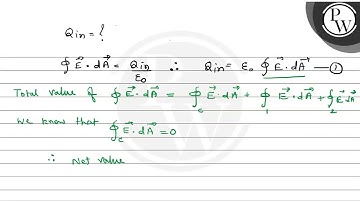 Qin = ?
∮ E⃗ · dA⃗ = Qin/ε₀ ∴ Qin = ε₀ ∮ E⃗ · dA⃗ — ①
Total value of ∮ E⃗ · dA⃗ = ∮c E⃗ · dA⃗ + ∮1 E⃗ · dA⃗ + ∮2 E⃗ · dA⃗
We know that ∮c E⃗ · dA⃗ = 0
∴ Net value
PW